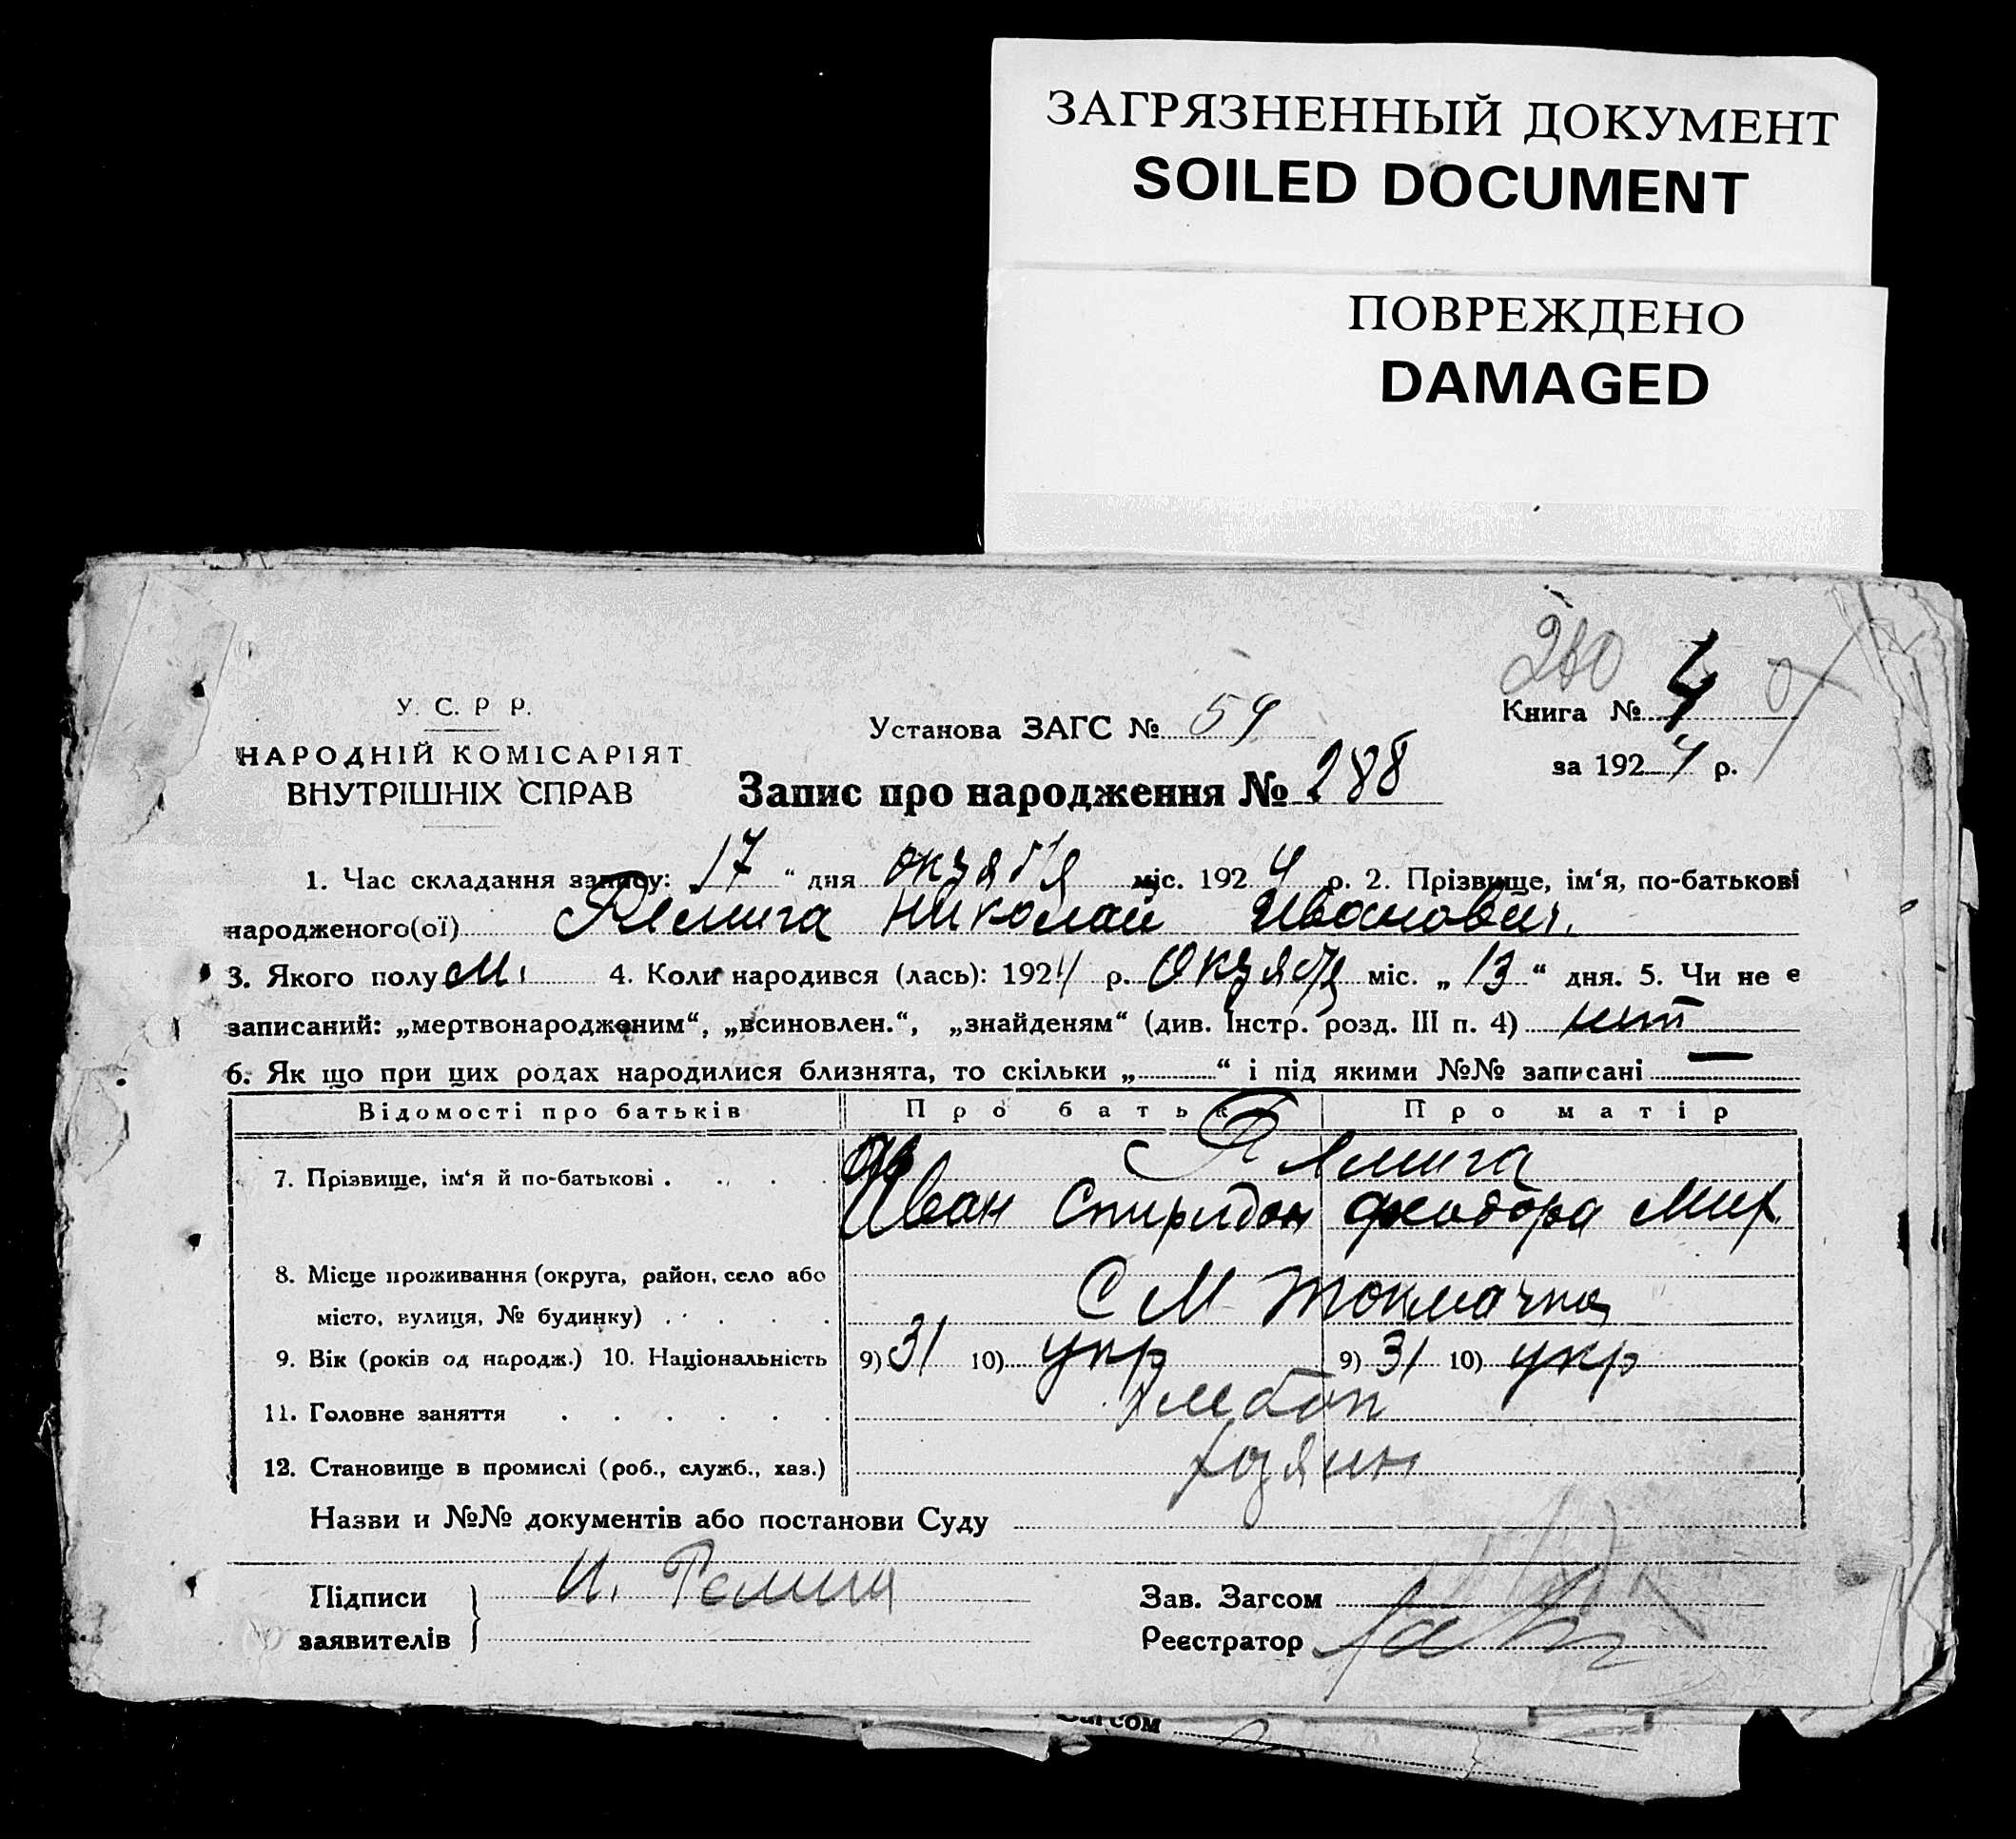 ЗАГРЯЗНЕННЫЙ ДОКУМЕНТ
SOILED DOCUMENT
ПОВРЕЖДЕНО
DAMAGED
У. С. Р Р.
НАРОДНІЙ КОМІСАРІЯТ
ВНУТРІШНІХ СПРАВ
Установа ЗАГС № 59
Книга № 4
за 1924 р.
Запис про народження № 288
1. Час складання запису: 17 “ дня октября міс. 1924 р. 2. Прізвище, ім‘я, по-батькові
народженого(ої) Николай Иванович
3. Якого полу м. 4. Коли народився (лась): 1924 р. Октября міс. „ 13 “ дня. 5. Чи не є
записаний: „мертвонародженим“, „всиновлен.“, „знайденям“ (див. Інстр. розд. III п. 4) нет
6. Як що при цих родах народилися близнята, то скільки „ “ і під якими №№ записані —
Відомості про батьків Про батька Про матір
7. Прізвище, ім‘я й по-батькові
Иван Спиридон Феодора Мит
8. Місце проживання (округа, район, село або
місто, вулиця, № будинку) С М Токмачка
9. Вік (років од народж.) 10. Національність 9) 31 10) укр 9) 31 10) укр
11. Головне заняття хлебоп
12. Становище в промислі (роб., служб., хаз.) хозяин
Назви и №№ документів або постанови Суду
Підписи
заявителів
И.
Зав. Загсом
Реєстратор
Загсом